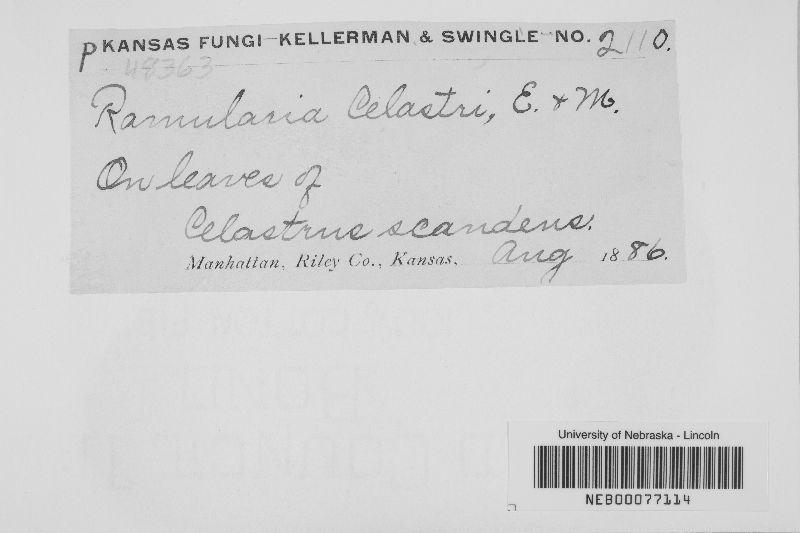 P KANSAS FUNGI-KELLERMAN & SWINGLE NO. 2110.
48363
Ramularia Celastri, E. & M.
On leaves of
Celastrus scandens.
Manhattan, Riley Co., Kansas, Aug 1886.
University of Nebraska - Lincoln
NEB00077114